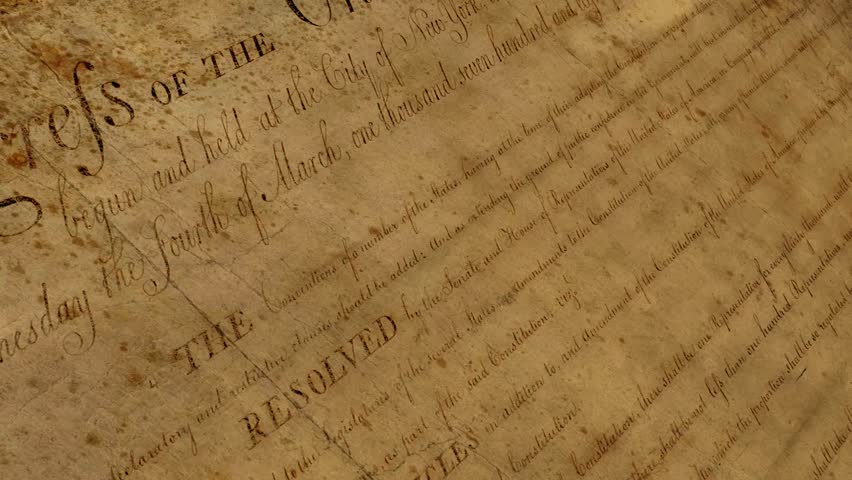 gress OF THE
begun and held at the City of New York,
nesday the Fourth of March, one thousand seven hundred and eigh
THE Conventions of a number of the States, having at the time of their adopting the Constitution, expressed a
declaratory and restrictive clauses should be added: And as extending the ground of public confidence in the Government, will best ensure the
RESOLVED by the Senate and House of Representatives of the United States of America, in Congress
to the Legislatures of the several States, as amendments to the Constitution of the United States,
as part of the said Constitution; viz.
CLES in addition to, and Amendment of the Constitution of the United States of America, proposed by
Constitution.
Constitution, there shall be one Representative for every thirty thousand, until
there shall be not less than one hundred Representatives, nor
which the proportion shall be so regulated by